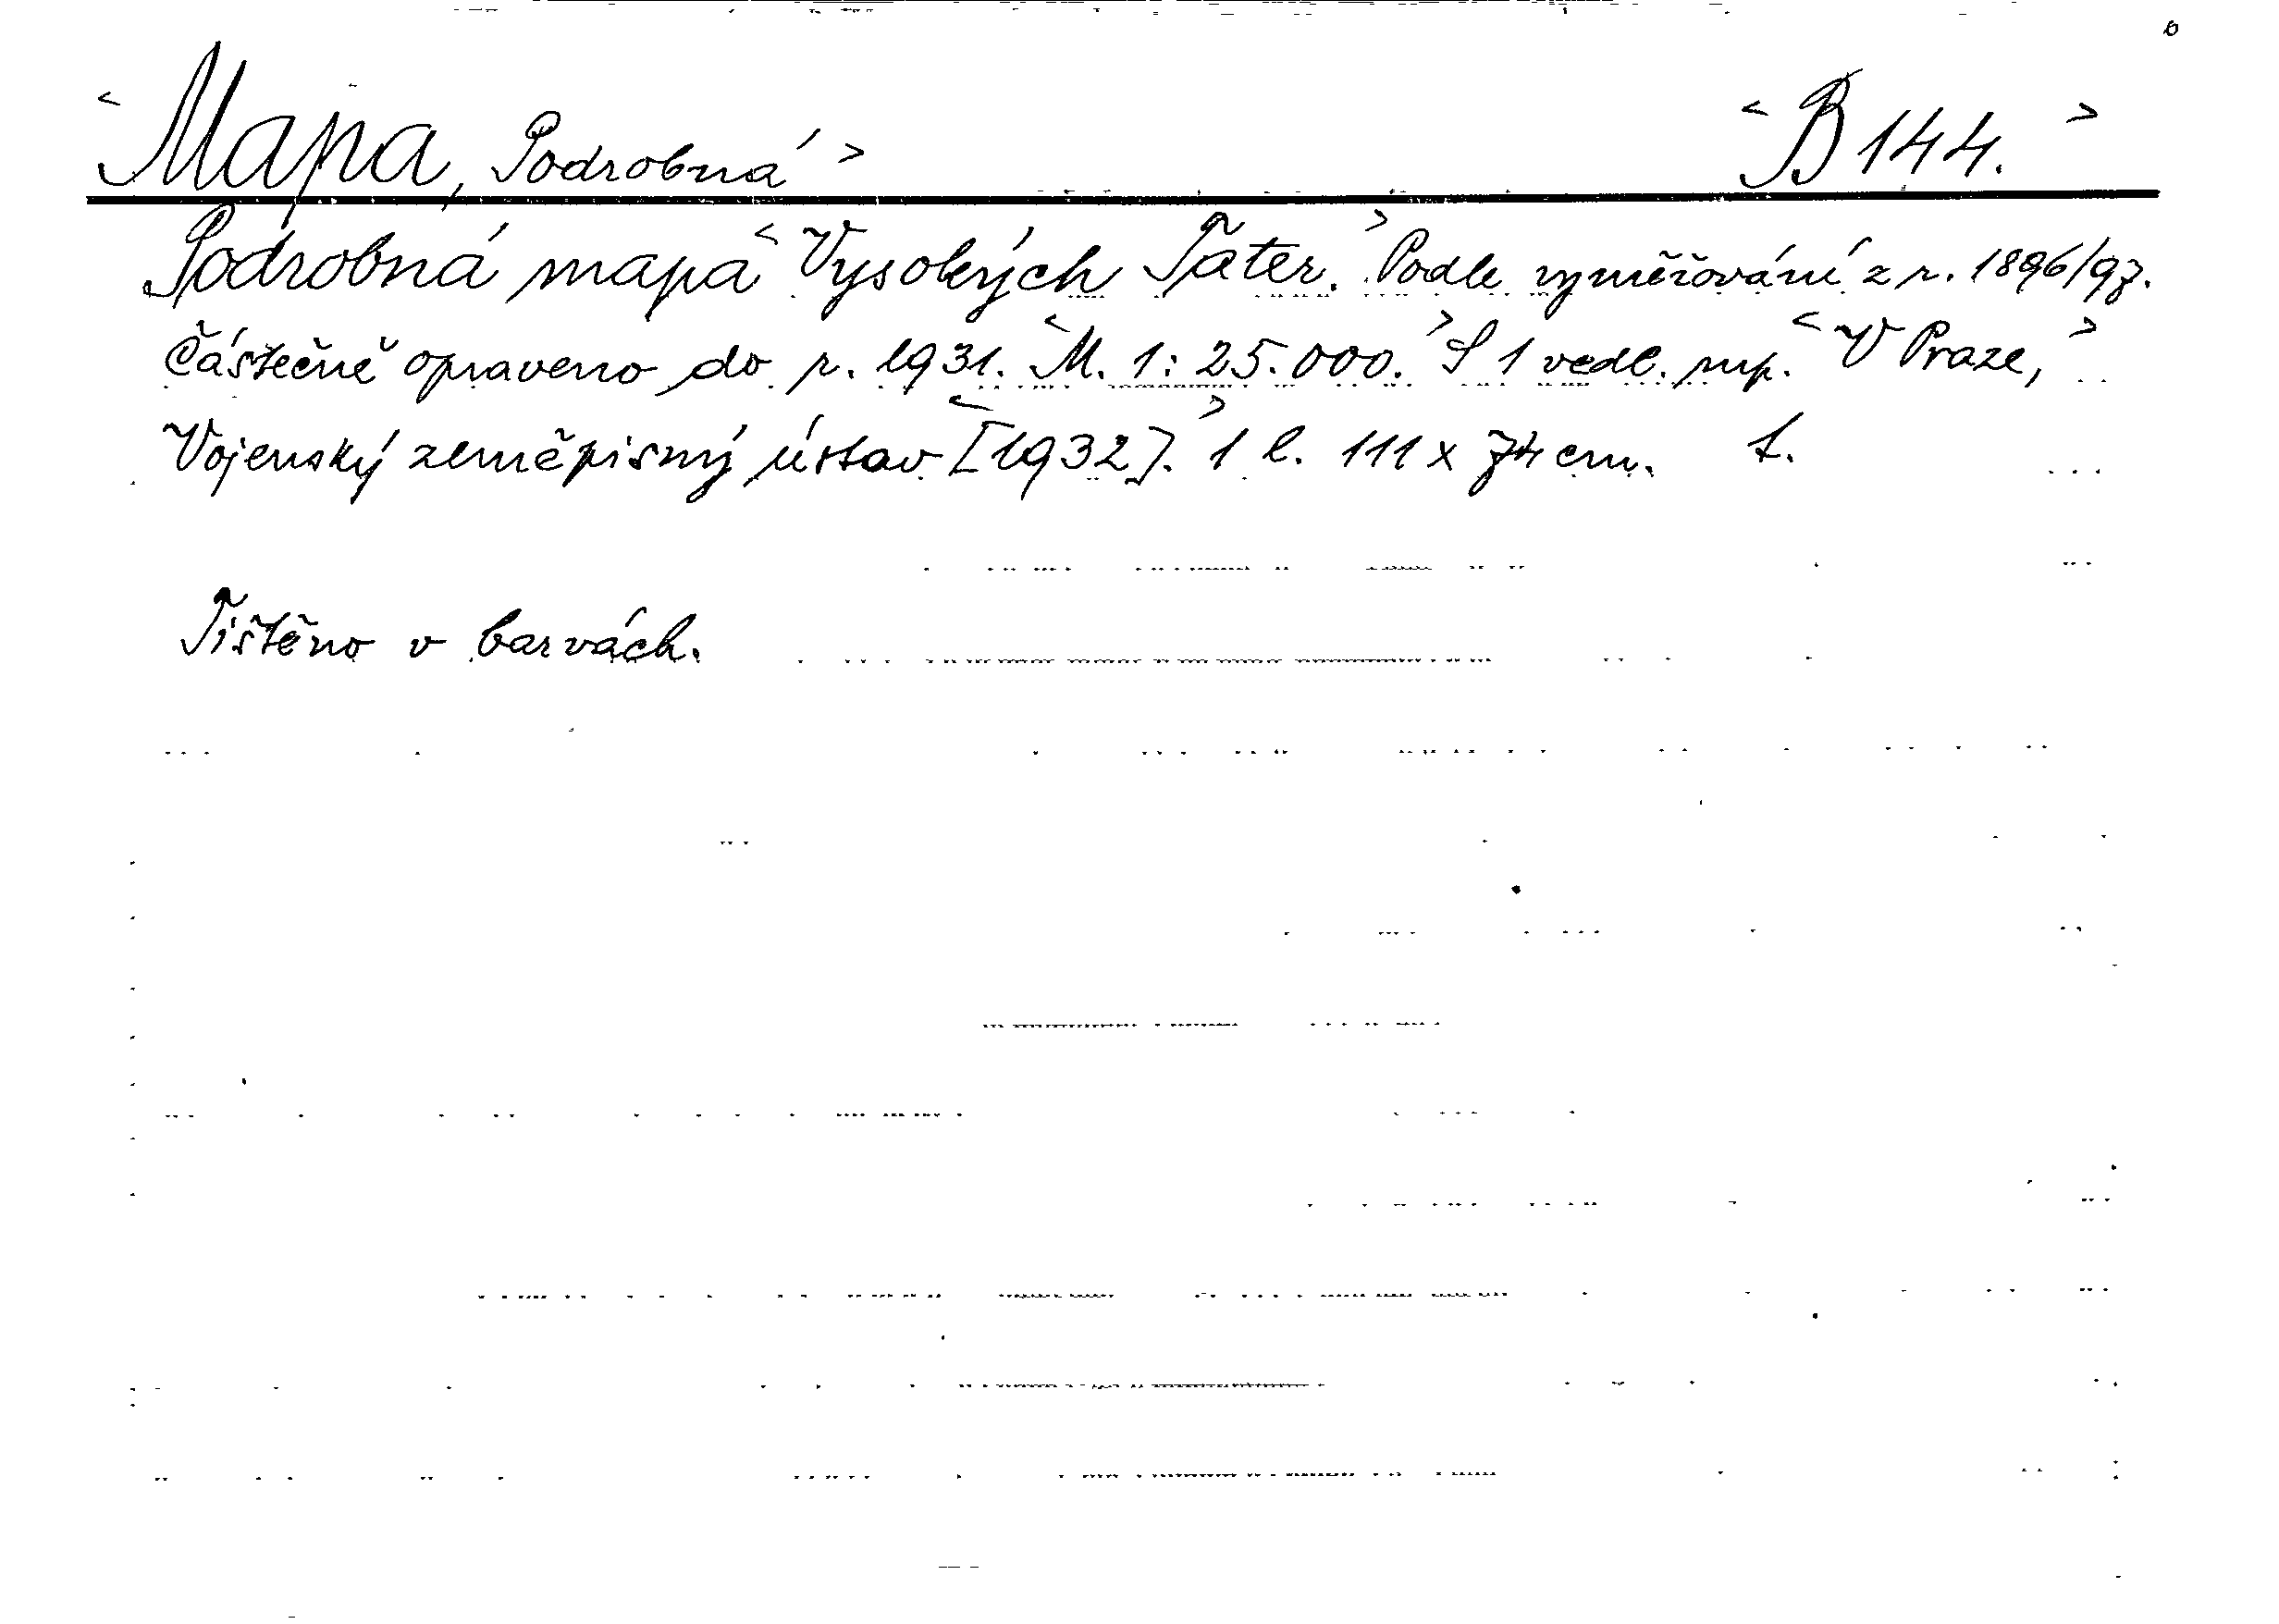 <Mapa, Podrobná> <B 144.>
Podrobná mapa <Vysokých Tater.> Podle vyměřování z r. 1896/97.
Částečně opraveno do r. 1931. <M. 1:25.000.> S 1 vedl. mp. <V Praze,>
Vojenský zeměpisný ústav <[1932].> 1 l. 111 x 74 cm. t.
Tištěno v barvách.